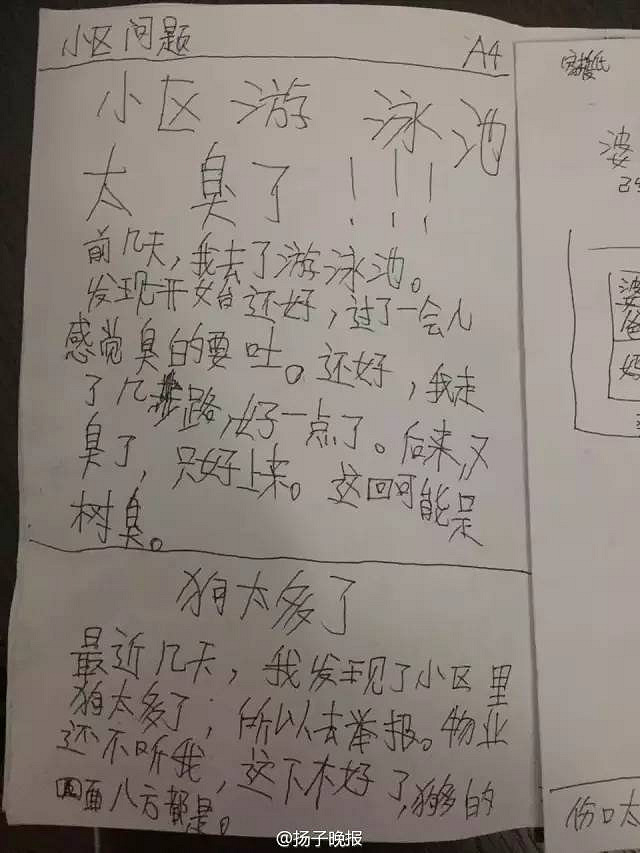 小区问题 A4
小区游泳池
太臭了!!!
前几天,我去了游泳池。
发现开始还好,过了一会儿
感觉臭的要吐。还好,我走
了几步路,好一点了。后来,又
臭了,只好上来。这回可能是
树臭。
狗太多了
最近几天,我发现了小区里
狗太多了,所以去举报。物业
还不听我,这下不好了,多的
面八方都是。
婆
婆
爸
妈
伤口太
@扬子晚报